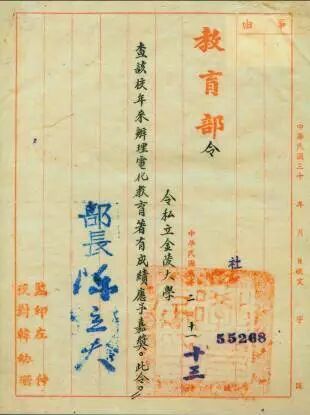 事由
教育部令
中華民國三十 年 月 日收文 字 號
社
55268
中華民國
二 十一 十三
令私立金陵大學
查該校年來辦理電化教育著有成績應予嘉獎。此令。
部長陳立夫
監印左仲
校對韓